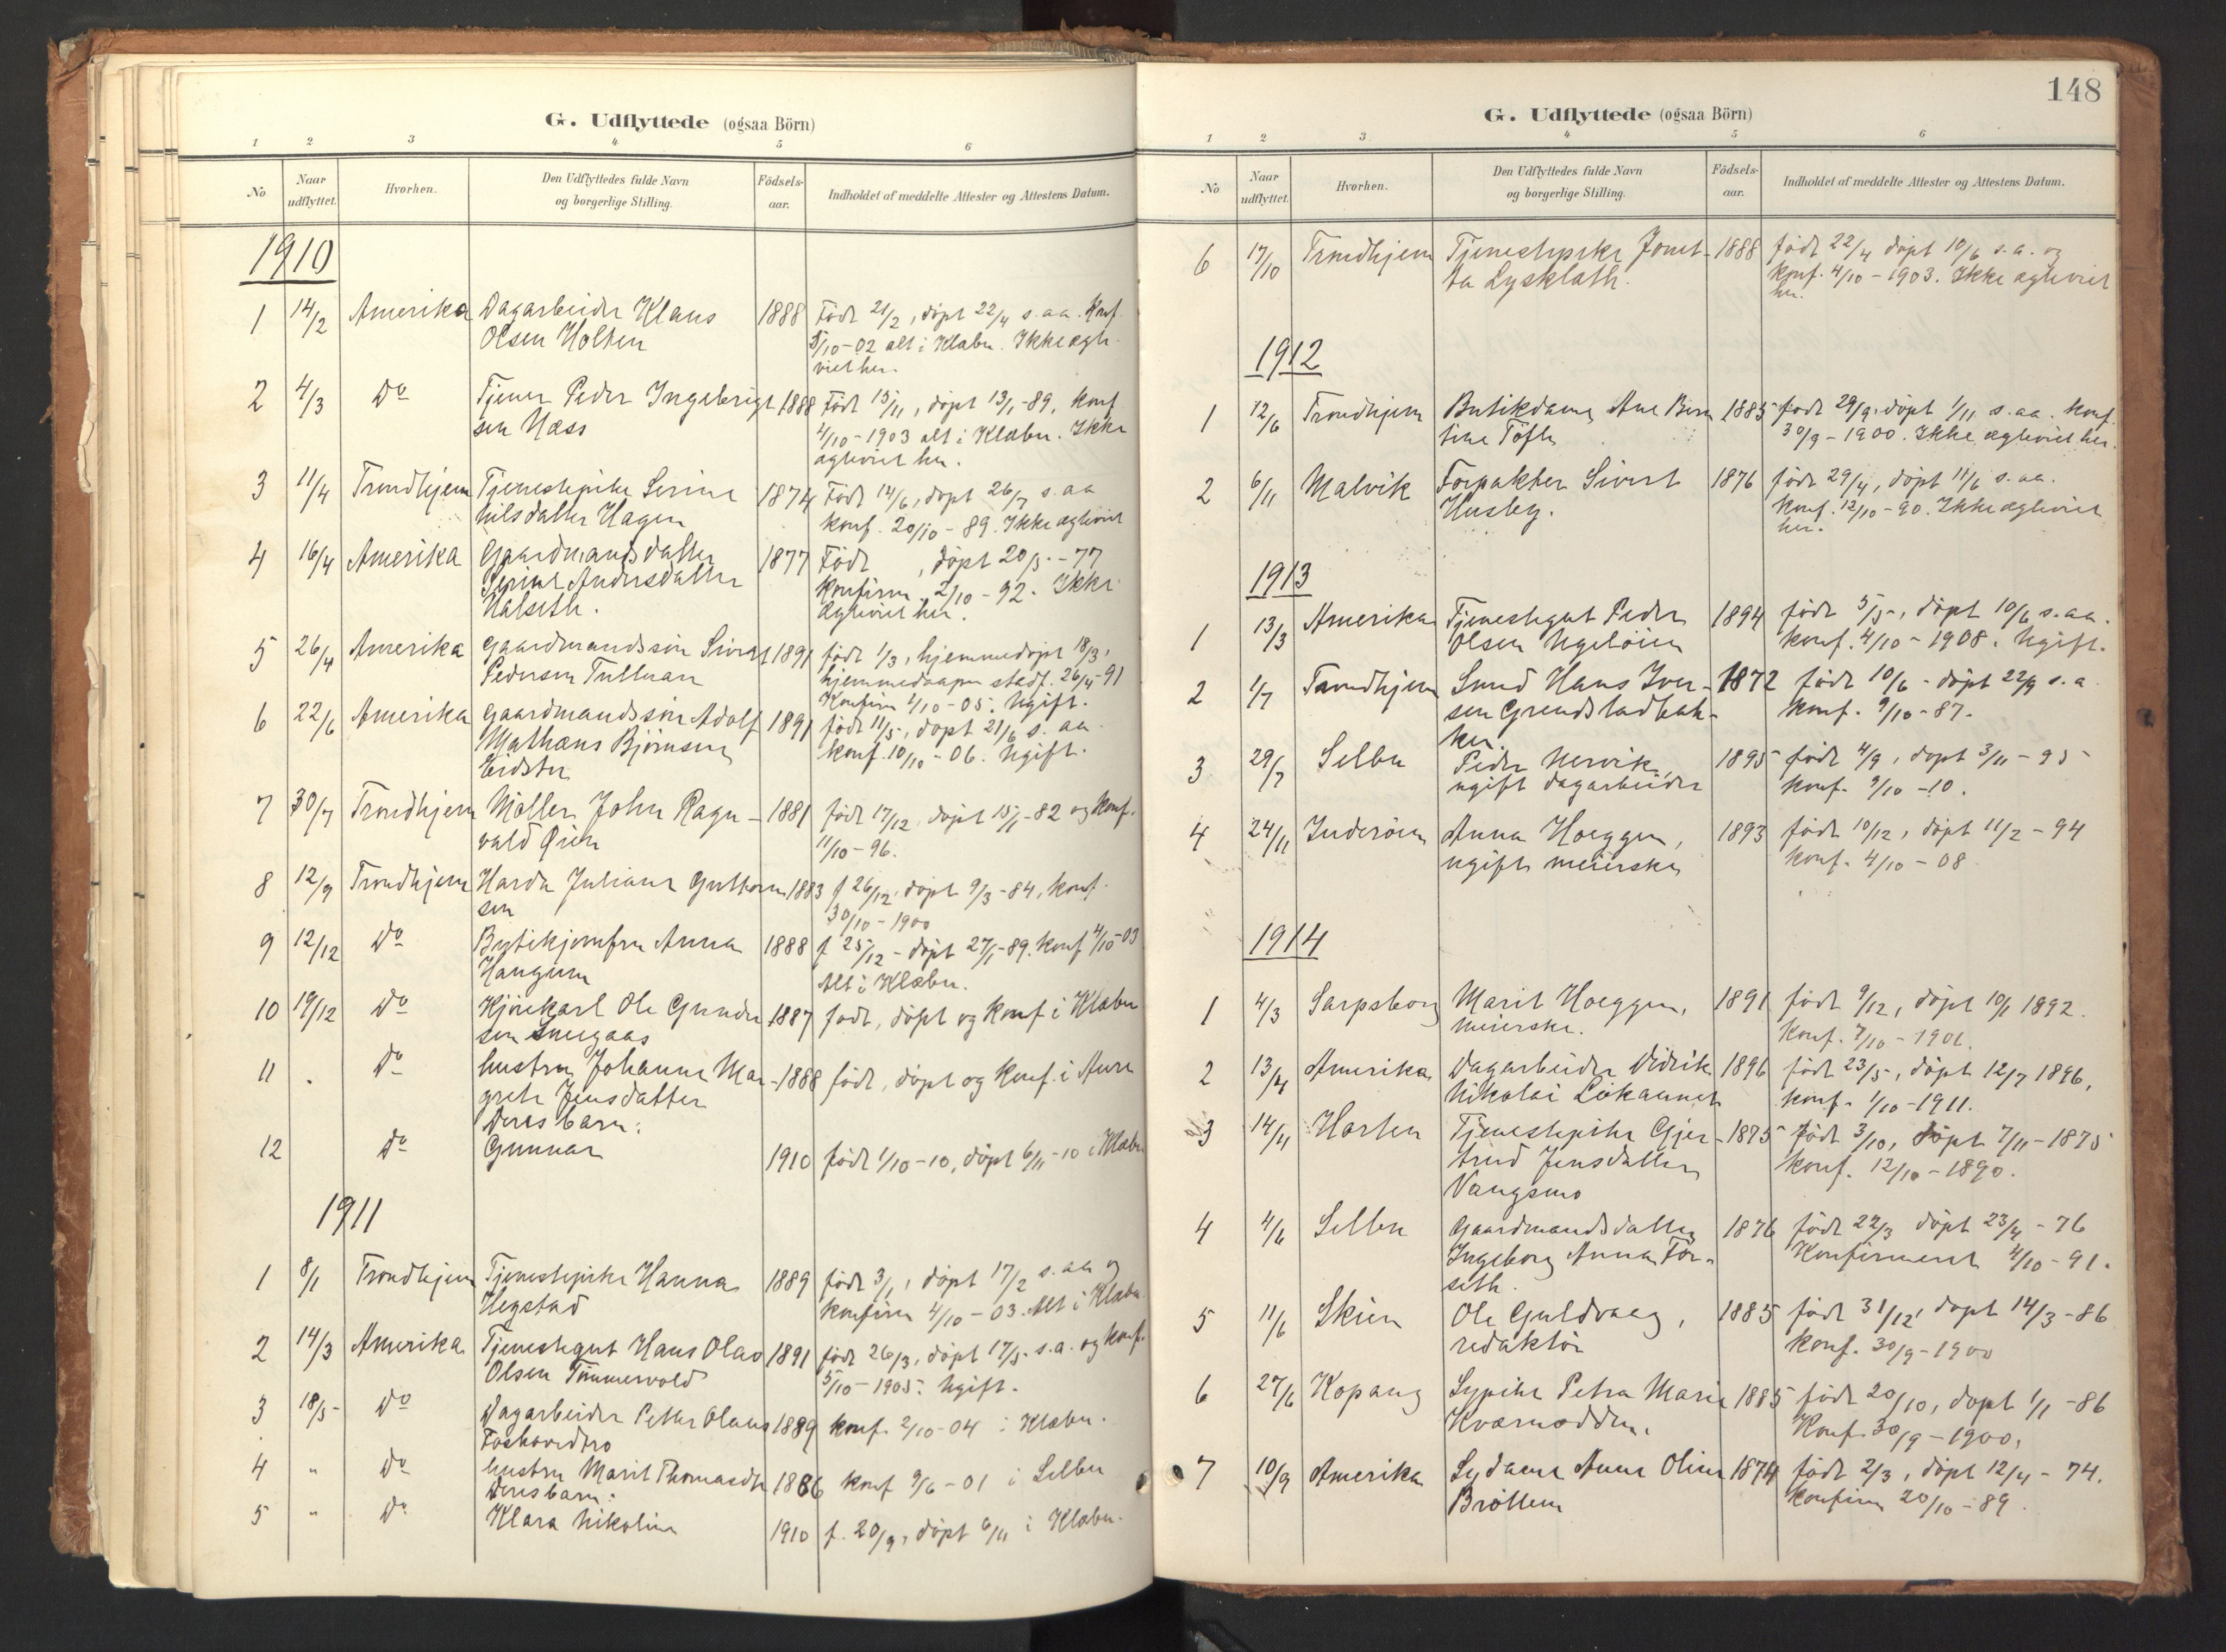 G. Udflyttede (ogsaa Börn)
1 2 3 4 5 6
No Naar udflyttet. Hvorhen. Den Udflyttedes fulde Navn og borgerlige Stilling. Födsels-aar. Indholdet af meddelte Attester og Attestens Datum.
1910
1 14/2 Amerika Dagarbeider Klaus 1888 Født 21/2, döpt 22/4 s. aa. Konf.
Olsen Holten 5/10-02 alt i Klæbu. Ikke ægte-
viet her.
2 4/3 Do Tjener Peder Ingebrigt 1888 Født 15/11, döpt 13/1-89, konf
sen Næss 4/10-1903 alt i Klæbu. Ikke
ægteviet her.
3 11/4 Trondhjem Tjenestepike Serine 1874 Født 14/6, döpt 26/7 s. aa
Nilsdatter Hagen konf. 20/10-89. Ikke ægteviet
4 16/4 Amerika Gaardmandsdatter 1877 Født , döpt 20/5-77
Serine Andersdatter Konfirm. 2/10-92. Ikke
Halseth. ægteviet her.
5 26/4 Amerika Gaardmandssön Sivert 1891 født 1/3, hjemmedöpt 18/3,
Pedersen Tulluan hjemmedaapen stadf. 26/4-91
Konfirm 1/10-05. Ugift.
6 22/6 Amerika Gaardmandssön Adolf 1891 født 11/5, döpt 21/6 s. aa.
Mathæus Björnsen konf. 10/10-06. Ugift.
Eidster
7 30/7 Trondhjem Möller John Ragn- 1881 født 17/12 döpt 15/1-82 og konf.
vald Öien 11/10-96.
8 12/9 Trondhjem Harda Juliane Guttorm 1883 f 26/12, döpt 9/3-84, konf.
sen 30/10-1900
9 12/12 Do Butikjomfru Anna 1888 f 25/12- döpt 27/1-89. konf 4/10-03
Haugum Alt i Klæbu.
10 19/12 Do Kjörekarl Ole Gunder 1887 født, döpt og konf i Klæbu
sen Sneegaas
11 . Do hustru Johanne Mar- 1888 født, döpt og konf. i Aure
grete Jensdatter
Deres barn:
12 Do Gunnar 1910 født 1/10-10, döpt 6/11-10 i Klæbu
1911
1 8/1 Trondhjem Tjenestepike Hanna 1889 født 3/1, döpt 17/2 s. aa og
Hegstad konfirm 4/10-03. Alt i Klæbu.
2 14/3 Amerika Tjenestegut Hans Olao 1891 født 26/3, döpt 17/5 s. a. og konf.
Olsen Tömmervold 5/10-1905. Ugift.
3 18/5 Do Dagarbeider Petter Olaus 1889 konf. 2/10-04 i Klæbu.
4 " Do hustru Marit Thomasdtr 1886 konf 9/6-01 i Selbu
Deres barn:
5 " Do Klara Nikoline 1910 f. 20/9, döpt 6/11 i Klæbu.
148
G. Udflyttede (ogsaa Börn)
1 2 3 4 5 6
No Naar udflyttet. Hvorhen. Den Udflyttedes fulde Navn og borgerlige Stilling. Födsels-aar. Indholdet af meddelte Attester og Attestens Datum.
6 17/10 Trondhjem Tjenestepike Jonet- 1888 født 22/4 döpt 10/6 s. a. og
ta Lysklæth. konf. 4/10-1903. Ikke ægteviet
her.
1912
1 12/6 Trondhjem Butikdame Ane Bern 1885 født 29/9, döpt 1/11 s. aa. konf.
tine Töfte 30/9-1900. Ikke ægteviet her.
2 6/11 Malvik Forpakter Sivert 1876 født 29/4, döpt 11/6 s. aa.
Husby. konf. 12/10-90. Ikke ægteviet
her.
1913
1 13/3 Amerika Tjenestegut Peder 1894 født 5/5, döpt 10/6 s. aa.
Olsen Ugelöien konf. 4/10-1908. Ugift.
2 1/7 Trondhjem Smed Hans Iver- 1872 født 10/6- döpt 22/9 s. a
sen Grendstadbak- konf. 9/10-87.
ken.
3 29/7 Selbu Peder Nervik, 1895 født 4/9, döpt 3/11-95
ugift dagarbeider konf. 9/10-10.
4 24/11 Inderöen Anna Hoeggen, 1893 født 10/12, döpt 11/2-94
ugift meierske konf. 4/10-08
1914
1 4/3 Sarpsborg Marit Hoeggen, 1891 født 9/12, döpt 10/1 1892.
meierske. Konf. 7/10-1906.
2 13/4 Amerika Dagarbeider Didrik 1896 født 23/5, döpt 12/7 1896,
Nikolai Lökaunet konf. 1/10-1911.
3 14/4 Horten Tjenestepike Gjer- 1875 født 3/10, döpt 7/11-1875
trud Jensdatter konf. 12/10-1890.
Vangsmo
4 4/6 Selbu Gaardmandsdatter 1876 født 22/3 döpt 23/4-76
Ingeborg Anna For- Konfirmeret 4/10-91.
seth
5 11/6 Skien Ole Guldvaag, 1885 født 31/12, döpt 14/3-86
redaktör konf. 30/9-1900
6 27/6 Kopang Sypike Petra Marie 1885 født 20/10, döpt 1/1-86
Kværnødden. Konf. 30/9-1900,
7 10/9 Amerika Sydame Anne Oline 1874 født 2/3, döpt 12/4-74.
Bröttem konfirm 20/10-89.